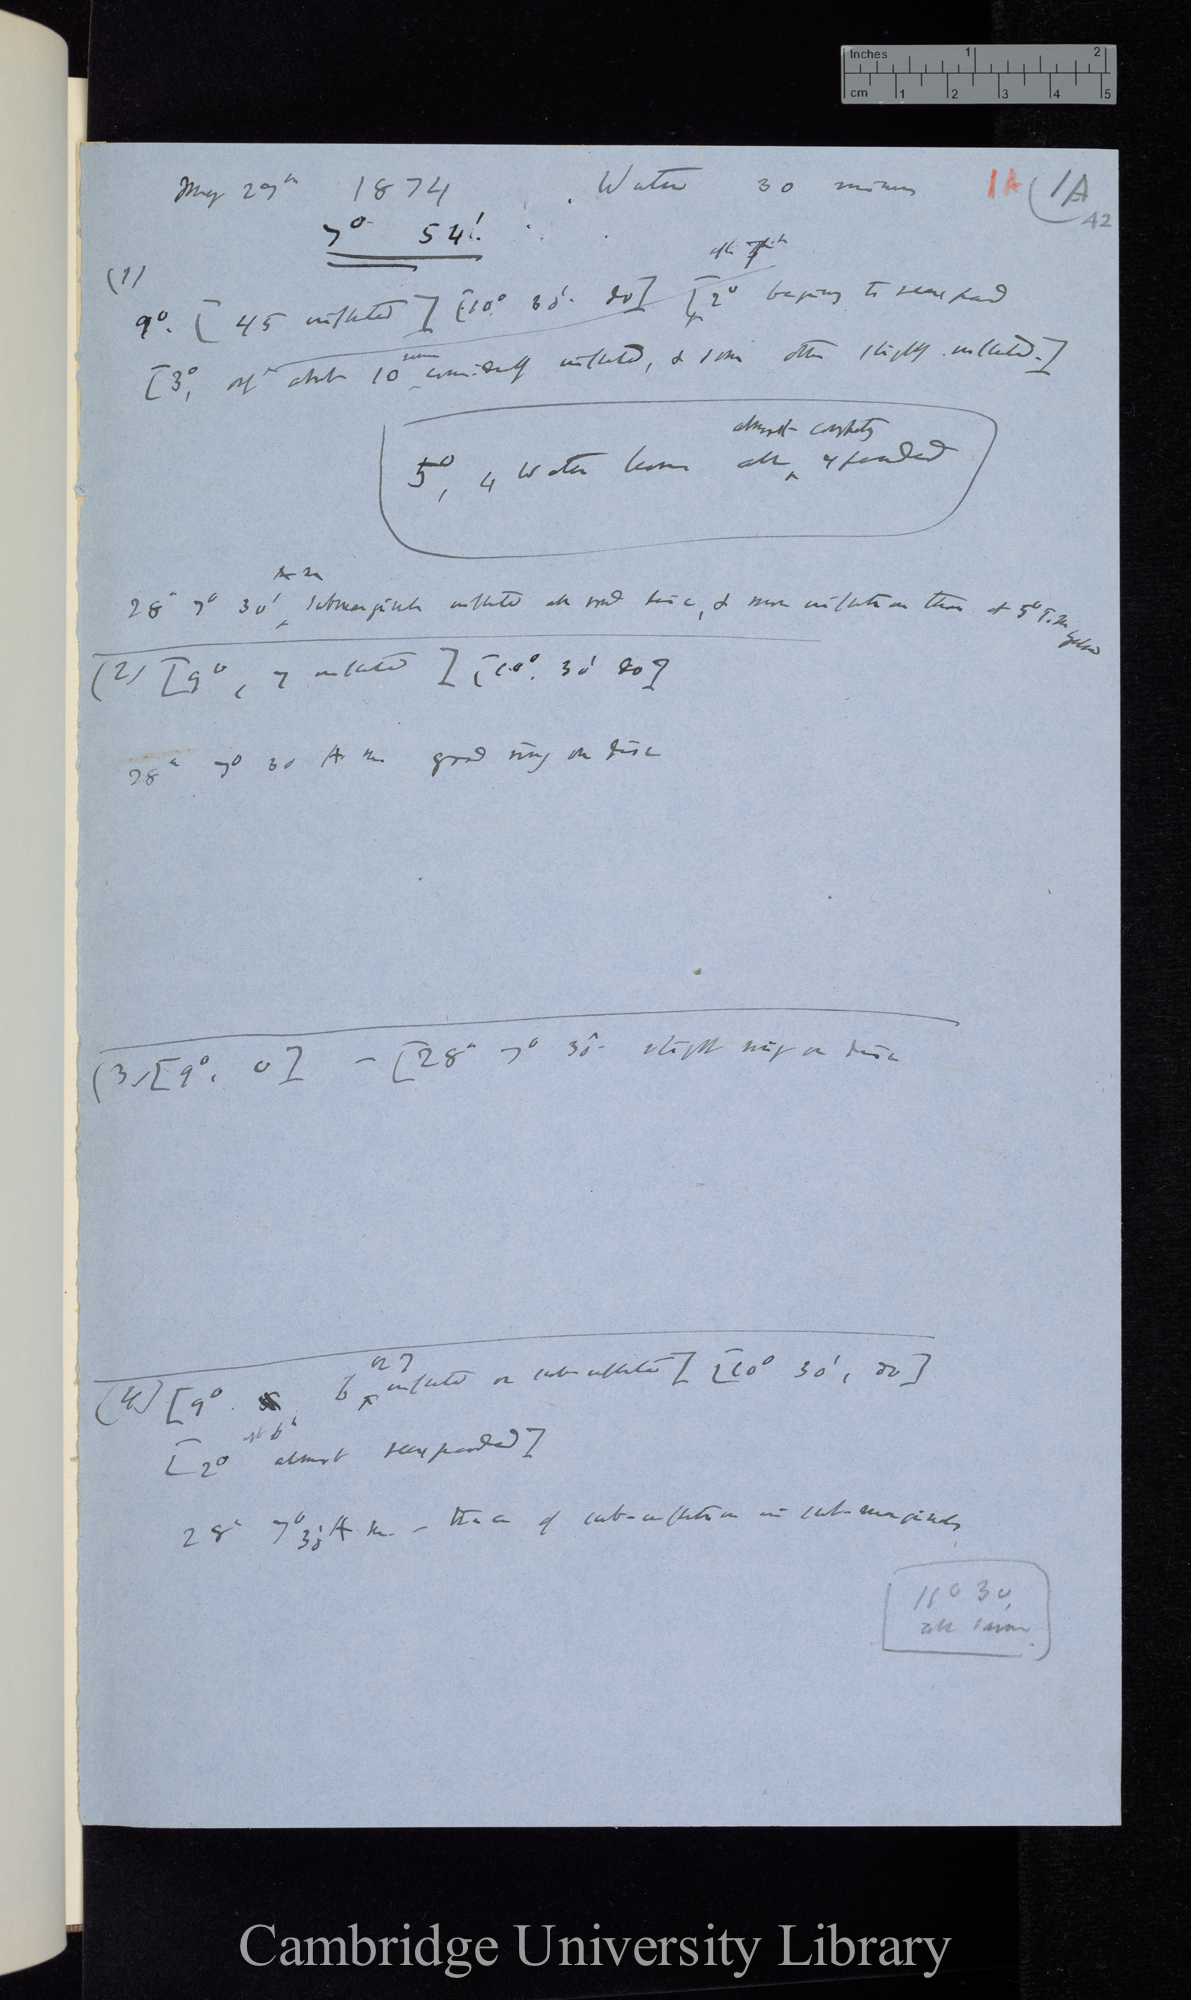 Inches 1 2
cm 1 2 3 4 5
May 27th 1874 Water 30 minutes 1A (1A
42
7° 54'.
(1)
after 7h
9°. [45 inflected] [10° 30' do] [2° begins to reexpand
[3°, only about 10 considerably inflected, & some others slightly inflected.]
almost completely
5°, 4 Water leaves all ^ expanded
A m
28th 7° 30' ^ submarginals inflected all round disc, & more inflection than at 5° P.m
(2) [9°, 7 inflected] [10°. 30' do]
28th 7° 30 A m good ring on disc
(3) [9°. 0] – [28th 7° 30' slight ring on disc
or 7
(4) [9°. 6 ^ inflected or sub-inflected] [10° 30', do]
after 6h
[2° almost reexpanded]
28th 7° 30' A m. – trace of sub-inflection in sub-marginals
11° 30,
all same
Cambridge University Library